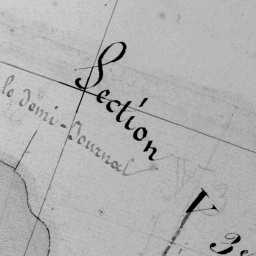 Section
le demi-Journal
V